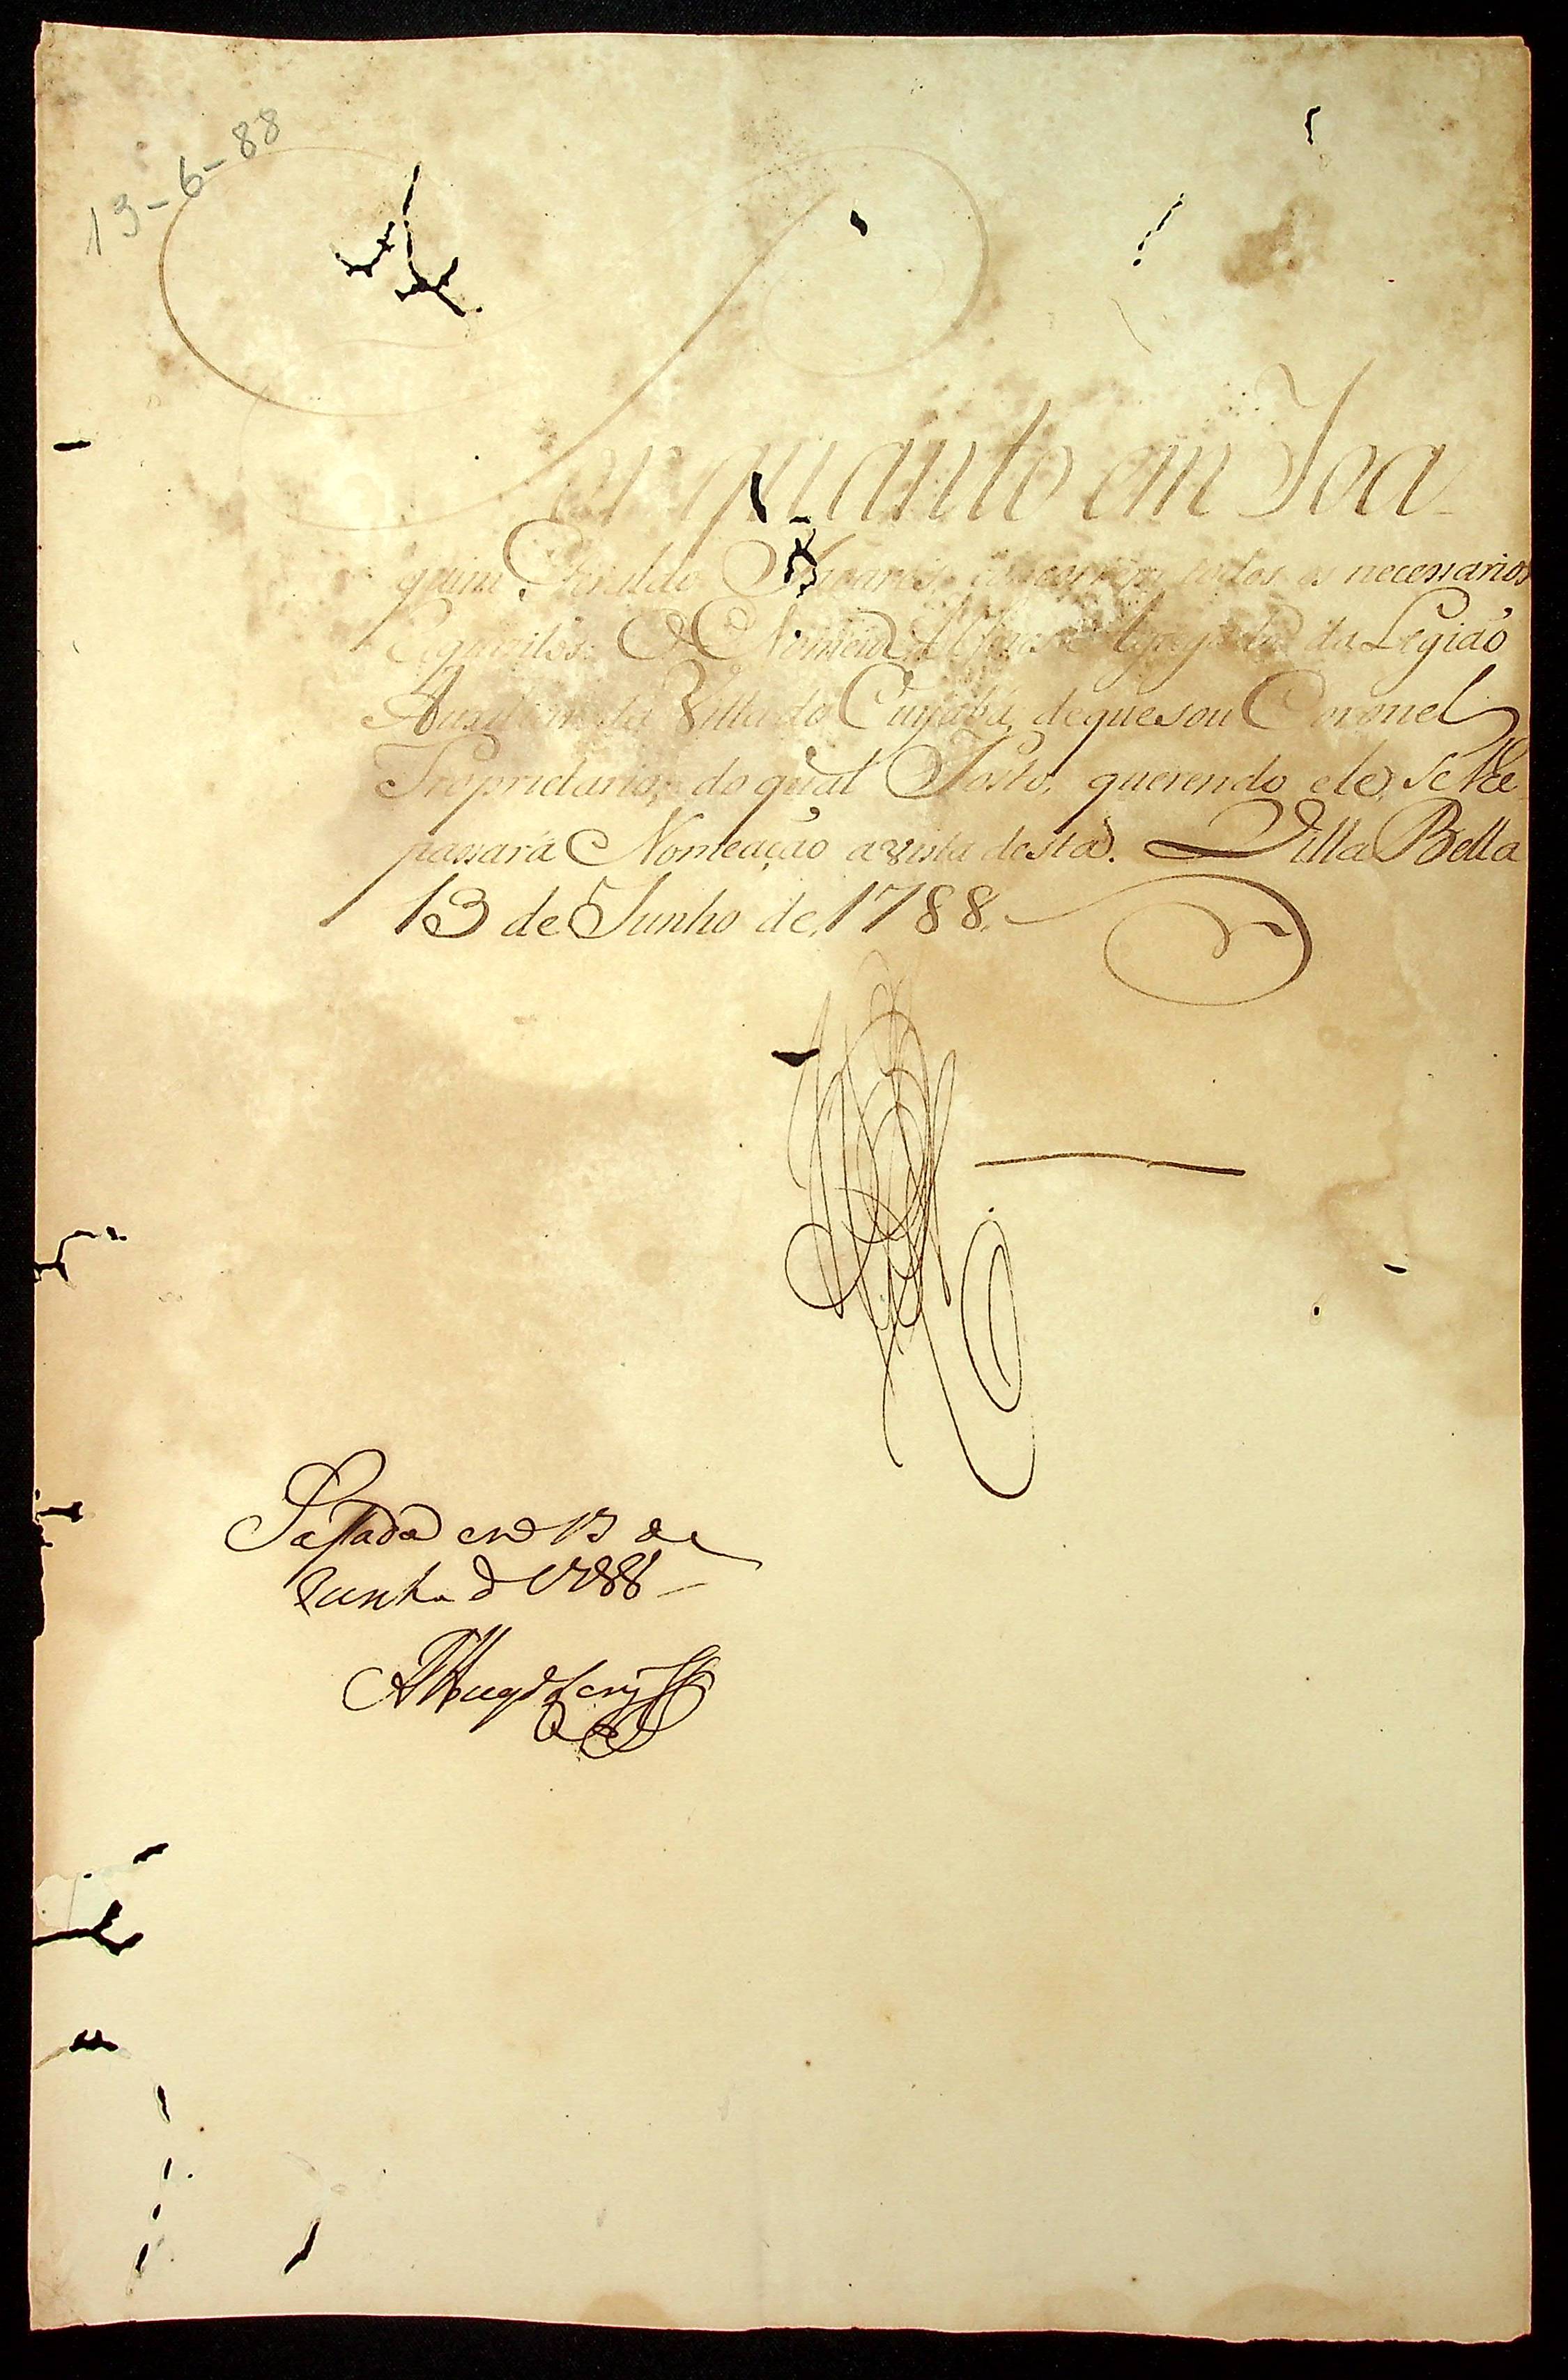 13-6-88
Porquanto em Joa
quim Giraldo Tavares, concorrem todos os necessarios
Requezitos: O Nomeio Alferes Agregado da Legião
Auxiliar da Villa do Cuyabá, de que sou Coronel
Proprietario, do qual Posto, querendo ele, se lhe
passará Nomeação a vista desta. Villa Bella
13 de Junho de 1788.
Passada em 13 de
Junho d 1788